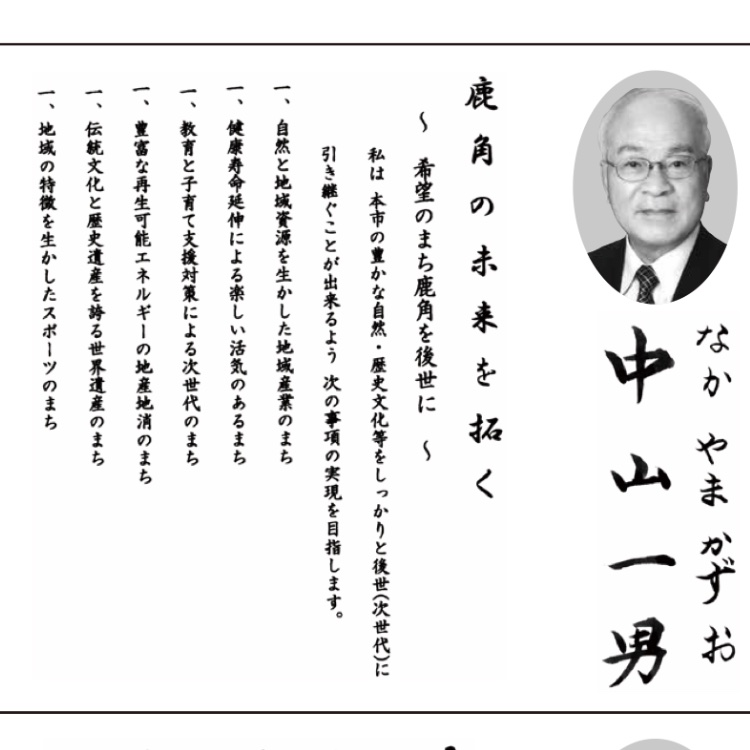 なかやまかずお
中山一男
鹿角の未来を拓く
～ 希望のまち鹿角を後世に ～
私は 本市の豊かな自然・歴史文化等をしっかりと後世(次世代)に
引き継ぐことが出来るよう 次の事項の実現を目指します。
一、自然と地域資源を生かした地域産業のまち
一、健康寿命延伸による楽しい活気のあるまち
一、教育と子育て支援対策による次世代のまち
一、豊富な再生可能エネルギーの地産地消のまち
一、伝統文化と歴史遺産を誇る世界遺産のまち
一、地域の特徴を生かしたスポーツのまち